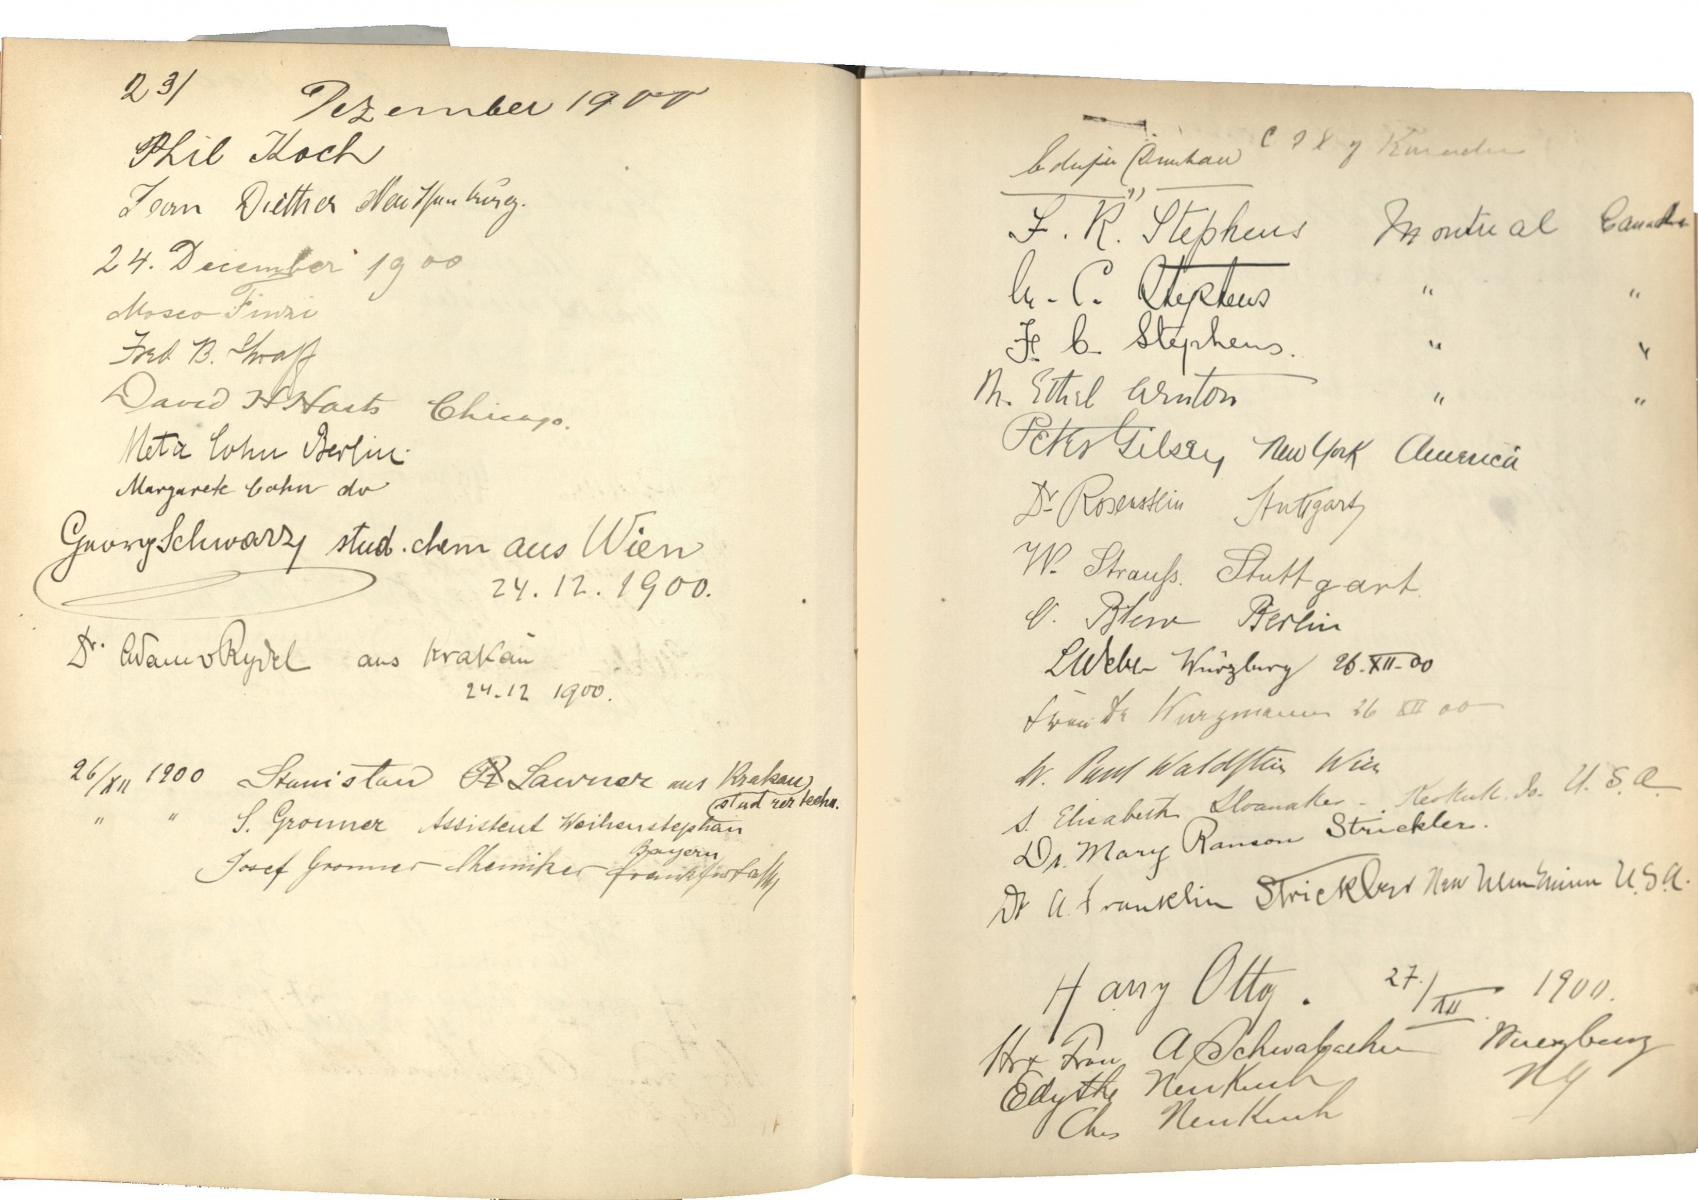 23/ Dezember 1900
Phil Koch
Jean Diether
24. December 1900
Mosco Finzi
Fred B.
David H Chicago.
Meta Cohn Berlin.
Margarete Cohn do
Georg Schwarz stud. chem aus Wien
24.12.1900.
Dr. Adam v Rydel aus Krakau
24.12 1900.
26/XII 1900 Stanislaw aus Krakau
stud rer techn.
" " S. Gronner Assistent Weihenstephan
Bayern
Josef Gronner Chemiker Frankfurt a/M
F. R. Stephens Montreal Canada
C. Stephens " "
F. C. Stephens. " "
M. Ethel " "
Peter Gilsey New York America
Dr Rosenstein Stuttgart
W. Strauß. Stuttgart
Berlin
L Weber Würzburg 26.XII.00
Frau Dr Wurzmann 26 XII 00
Paul Waldstein Wien
S. Elisabeth Sloanaker - Keokuk. Io. U.S.A.
Dr. Mary Ranson Strickler.
Dr A. Franklin Strickler New Ulm Minn U.S.A.
Harry Otty. 27./XII. 1900.
Frau A Schwabacher Wuerzburg
Edythe NY
Chas